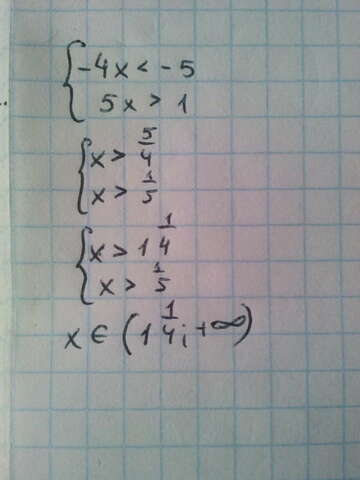 {-4x < -5
5x > 1
{x > 5/4
x > 1/5
{x > 1 1/4
x > 1/5
x ∈ (1 1/4; +∞)